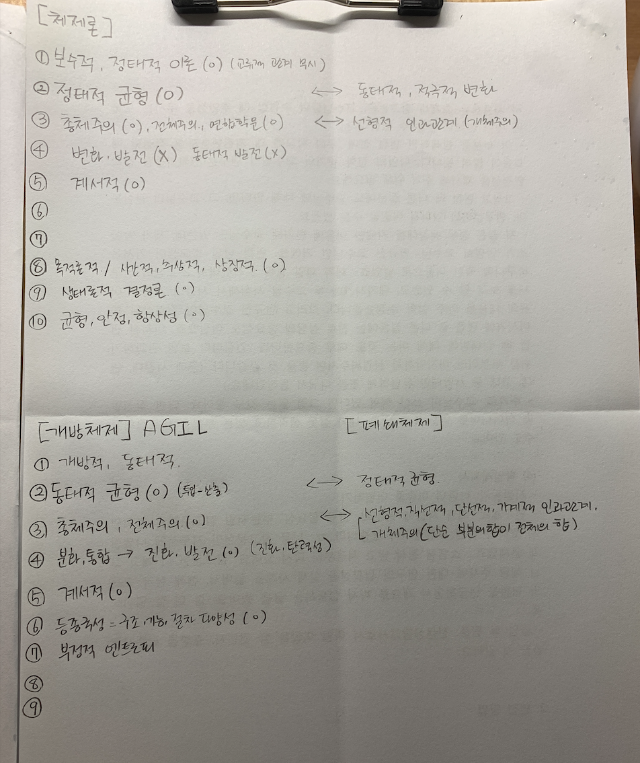 [체제론]
① 보수적, 정태적 이론 (O) (교류X 관계 무시)
② 정태적 균형 (O) ↔ 동태적, 적극적 변화
③ 총체주의 (O), 전체주의, 연합학문 (O) ↔ 선형적 인과관계 (개체주의)
④ 변화·발전 (X) 동태적 발전 (X)
⑤ 계서적 (O)
⑥
⑦
⑧ 목적론적 / 시간적, 추상적, 상징적 (O)
⑨ 생태론적 결정론 (O)
⑩ 균형, 안정, 항상성 (O)
[개방체제] AGIL [폐쇄체제]
① 개방적, 동태적.
② 동태적 균형 (O) (투입-산출) ↔ 정태적 균형
③ 총체주의, 전체주의 (O) ↔ 선형적, 직선적, 단선적, 인과관계.
[개체주의 (단순 부분의 합이 전체의 합)
④ 분화, 통합 → 진화·발전 (O) (진화·탄력성)
⑤ 계서적 (O)
⑥ 등종국성 = 구조, 절차 다양성 (O)
⑦ 부정적 엔트로피
⑧
⑨